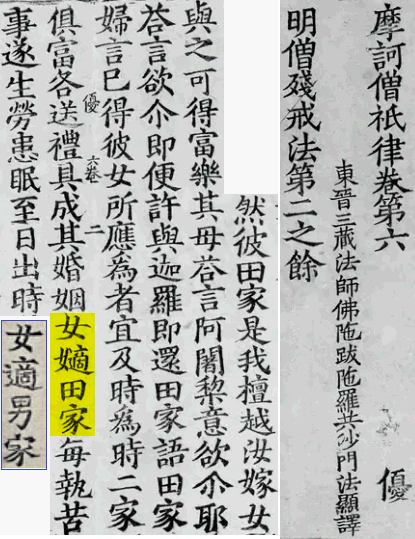 摩訶僧祇律卷第六 優
東晉三藏法師佛陁跋陁羅共沙門法顯譯
明僧殘戒法第二之餘
然彼田家是我檀越汝嫁女
與之可得富樂其母荅言阿闍棃意欲尒耶
荅言欲尒即便許與迦羅即還田家語田家
婦言已得彼女所應為者宜及時為時二家
優 六卷 二
俱富各送禮具成其婚姻女嫡田家每執苦
事遂生勞患眠至日出時
女適男家